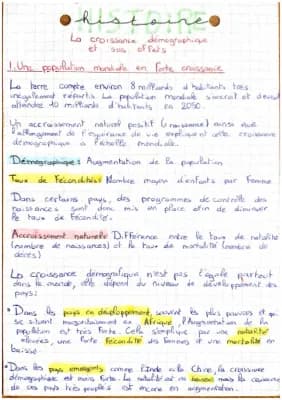 HISTOIRE
histoire
La croissance démographique
et ses effets
1. Une population mondiale en forte croissance
La terre compte environ 8 milliards d'habitants très
inégalement répartis. La population mondiale s'accroit et devrait
atteindre 10 milliards d'habitants en 2050.
Un accroissement naturel positif (naissances) ainsi que
l'allongement de l'espérance de vie expliquent cette croissance
démographique à l'échelle mondiale.
Démographique: Augmentation de la population
Taux de Fécondités: Nombre moyen d'enfants par Femme
Dans certains pays, des programmes de contrôle des
naissances sont donc mis en place afin de diminuer
le taux de Fécondité.
Accroissement naturelle Différence entre le taux de natalité
(nombre de naissances) et le taux de mortalité (nombre de
décès)
La croissance démografique n'est pas l'égale partout
dans le monde, elle dépend du niveau de développement des
pays:
• Dans les pays en développement, souvent les plus pauvres et qui
se situent majoritairement en Afrique, l'Augmentation de la
population est très Forte. Cela s'explique par une natalité
élevée, une Forte Fécondité des Femmes et une mortalité en
baisse.
• Dans les pays émergents comme l'Inde ou la Chine, la croissance
démographique est moins Forte. La natalité est en baisse mais la croissance
de ces pays très peuplés est encore en augmentation.